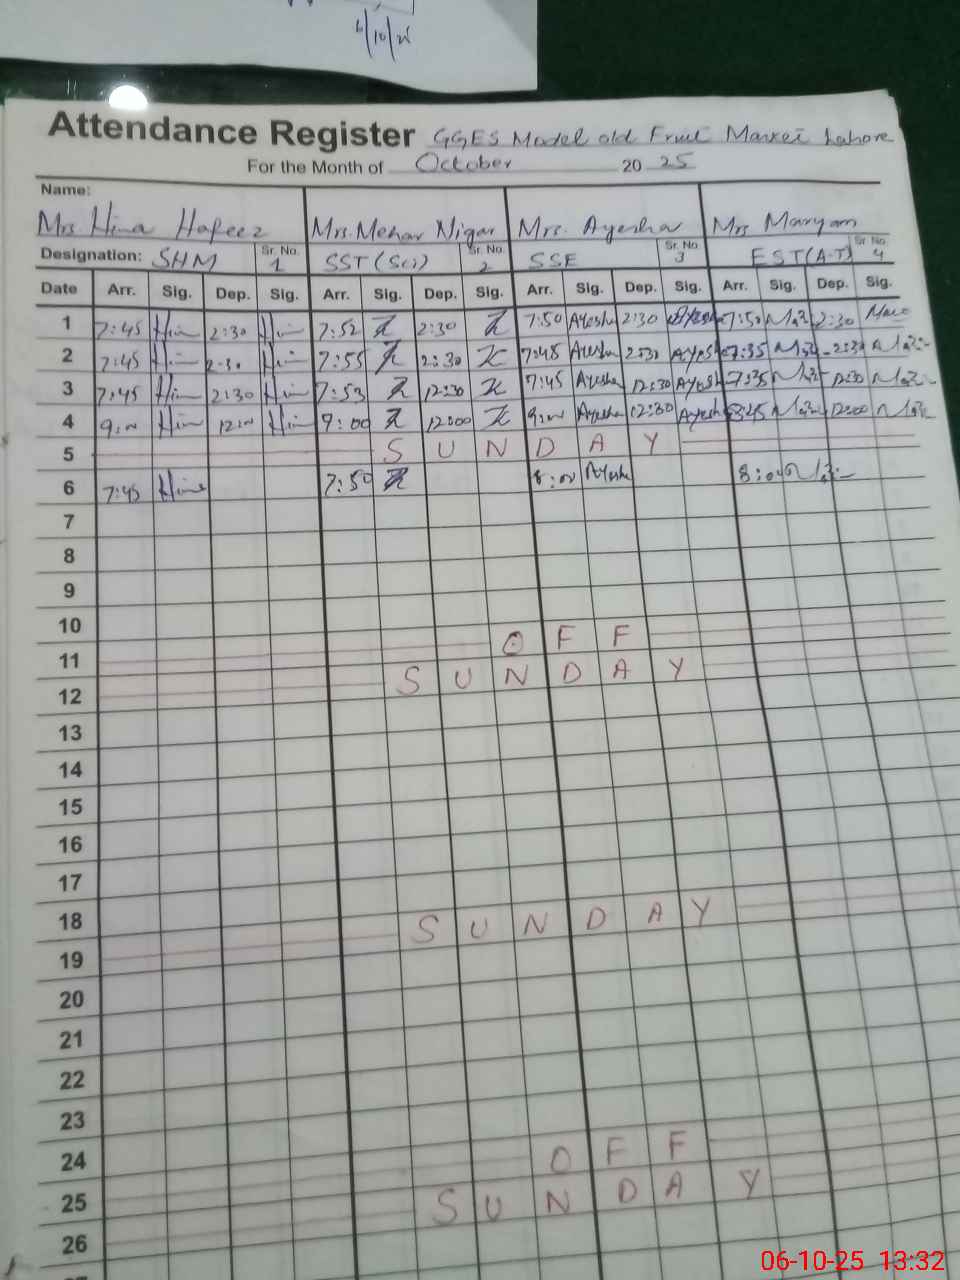 6/10/25
Attendance Register GGES Model old Fruit Market Lahore
For the Month of October 2025
Name:
Mrs. Hina Hafeez Mrs. Mehar Nigar Mrs. Ayesha Mrs Maryam
Designation: SHM Sr. No. 1 SST (Sci) Sr. No. 2 SSE Sr. No. 3 EST (A-T) Sr. No. 4
Date Arr. Sig. Dep. Sig. Arr. Sig. Dep. Sig. Arr. Sig. Dep. Sig. Arr. Sig. Dep. Sig.
1 7:45 2:30 7:52 2:30 7:50 Ayesha 2:30 Ayesha 7:50 2:30
2 7:45 2:30 7:55 2:30 7:45 Ayesha 2:30 Ayesha 7:35 2:30
3 7:45 2:30 7:53 12:30 7:45 Ayesha 12:30 Ayesha 7:35 12:30
4 9:00 12:00 9:00 12:00 9:00 Ayesha 12:30 Ayesha 8:45 12:00
5 S U N D A Y
6 7:45 7:50 8:00 Ayesha 8:00
7
8
9
10
11 O F F
12 S U N D A Y
13
14
15
16
17
18
19 S U N D A Y
20
21
22
23
24
25 O F F
26 S U N D A Y
06-10-25 13:32